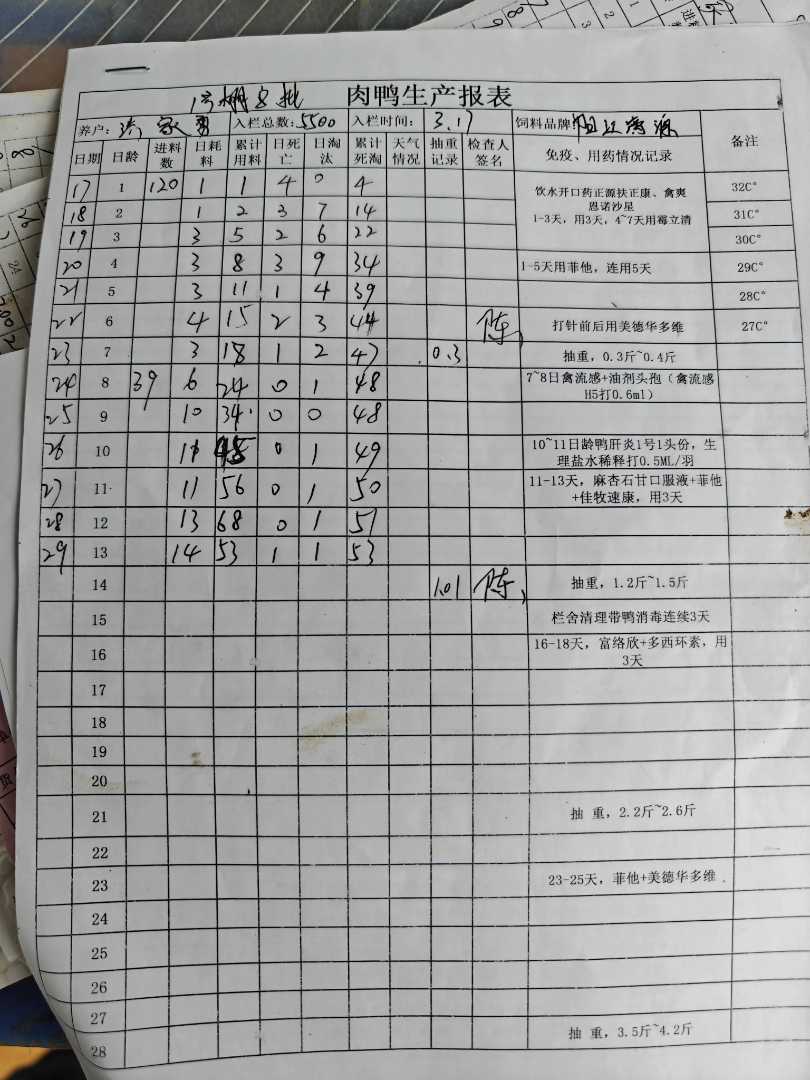 1号棚8批 肉鸭生产报表
养户: 家 入栏总数:5500 入栏时间: 3.17 饲料品牌: 阳江 源 备注
日期 日龄 进料数 日耗料 累计用料 日死亡 日淘汰 累计死淘 天气情况 抽重记录 检查人签名 免疫、用药情况记录
17 1 120 1 1 4 0 4 饮水开口药正源扶正康、禽爽恩诺沙星 32C°
18 2 1 2 3 7 14 1-3天，用3天，4~7天用霉立清 31C°
19 3 3 5 2 6 22 30C°
20 4 3 8 3 9 34 1-5天用菲他，连用5天 29C°
21 5 3 11 1 4 39 28C°
22 6 4 15 2 3 44 陈 打针前后用美德华多维 27C°
23 7 3 18 1 2 47 0.3 抽重，0.3斤~0.4斤
24 8 39 6 24 0 1 48 7~8日禽流感+油剂头孢（禽流感H5打0.6ml）
25 9 10 34 0 0 48
26 10 11 45 0 1 49 10~11日龄鸭肝炎1号1头份，生理盐水稀释打0.5ML/羽
27 11 11 56 0 1 50 11-13天，麻杏石甘口服液+菲他+佳牧速康，用3天
28 12 13 68 0 1 51
29 13 14 53 1 1 53
14 1.01 陈 抽重，1.2斤~1.5斤
15 栏舍清理带鸭消毒连续3天
16 16-18天，富络欣+多西环素，用3天
17
18
19
20
21 抽 重，2.2斤~2.6斤
22
23 23-25天，菲他+美德华多维
24
25
26
27
28 抽 重，3.5斤~4.2斤